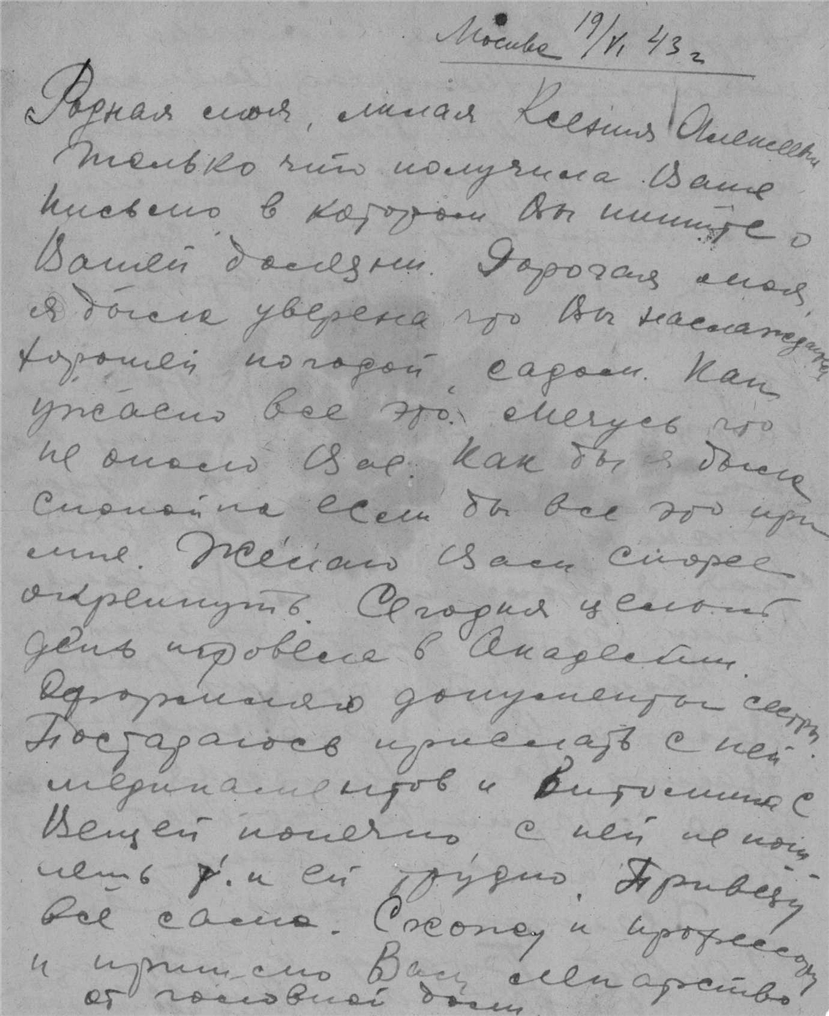 Москва 19/VI 43 г
Родная моя, милая Ксения Алексеевн
Только что получила Ваше
письмо, в котором Вы пишите о
Вашей болезни. Дорогая моя,
я была уверена что Вы наслаждаетесь
хорошей погодой, садом. Как
ужасно все это. Мечусь что
не около Вас. Как бы я была
спокойна если бы все это при
мне. Желаю Вам скорее
окрепнуть. Сегодня целый
день провела в Академии.
Оформляю документы сестры.
Постараюсь прислать с ней
медикаментов и Витамина С
Вещей конечно с ней не пош-
лешь т.к ей трудно. Привезу
всё сама. Схожу к профессору
и пришлю Вам лекарство
от головной боли